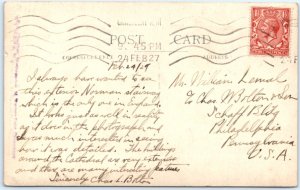 POST CARD
9. 45 PM
24 FEB 27
Feb 24/27
I always have wanted to see
this exterior Norman stairway
which is the only one in England.
It looks just as well in reality
as I do in the photographs, and
was much interested in seeing
how it was detailed. The buildings
around the Cathedral are very extensive
and there are many interesting
Sincerely Chas. L. Bolton
Mr. William
c/o Chas. W. Bolton & Son
Schaff Bldg
Philadelphia
Pennsylvania
U.S.A.